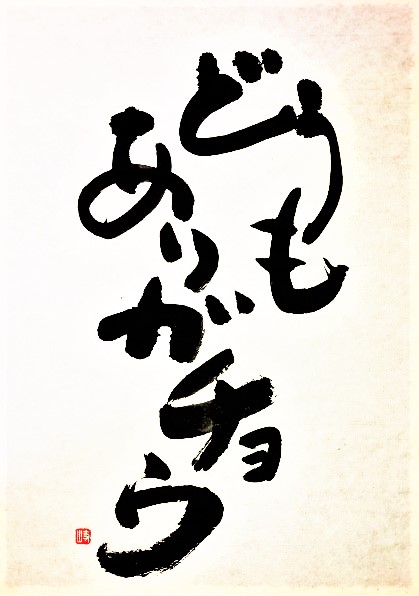 どうも
ありがチョウ